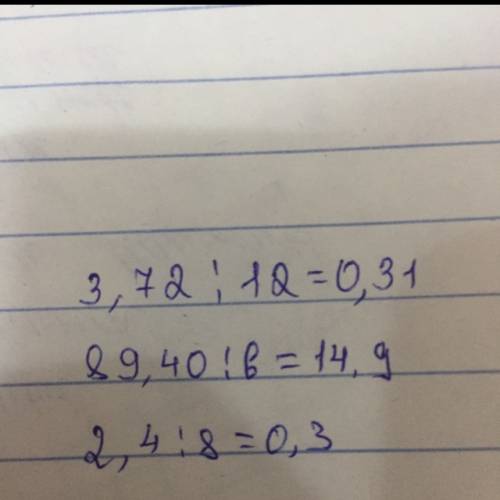 3,72 : 12 = 0,31
89,40 : 6 = 14,9
2,4 : 8 = 0,3